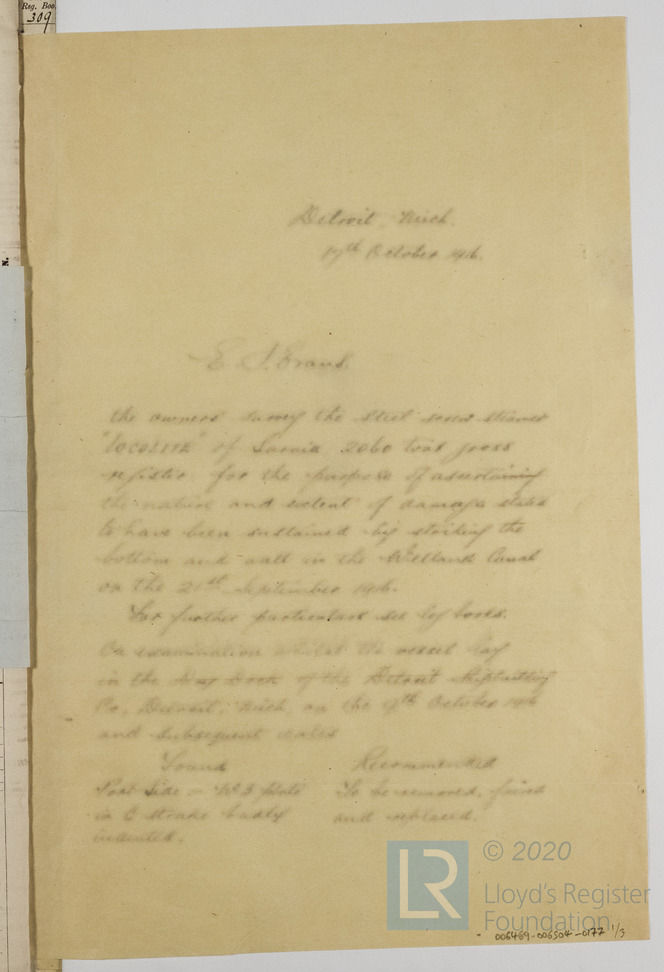 Reg. Boo
309
Detroit, Mich.
17th October 1916.
E. S. Evans.
the owners survey the steel screw steamer
"LOCOLITE" of Sarnia 2060 tons gross
register for the purpose of ascertaining
the nature and extent of damage stated
to have been sustained by striking the
bottom and wall in the Welland Canal
on the 21st September 1916.
For further particulars see log books.
On examination whilst the vessel lay
in the Dry Dock of the Detroit Shipbuilding
Co., Detroit, Mich, on the 9th October 1916
and subsequent dates
Found Recommended
Port Side - No 3 plate To be removed, faired
in C strake badly and replaced.
indented.
LR
© 2020
Lloyd's Register
Foundation
006469-006504-0177 1/3